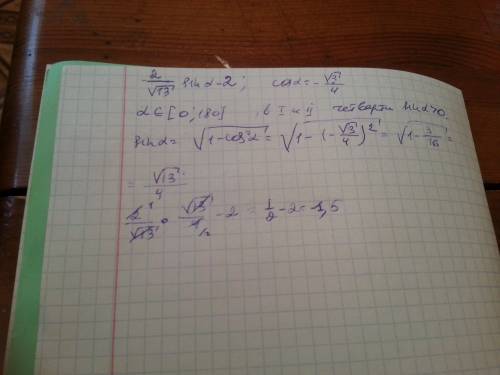 2/√13 sin α - 2; cos α = - √3/4
α ∈ [0; 180] , в I и II четверти sin α > 0.
sin α = √(1 - cos² α) = √(1 - (-√3/4)²) = √(1 - 3/16) =
= √13/4
2/√13 · √13/4 - 2 = 1/2 - 2 = 1,5